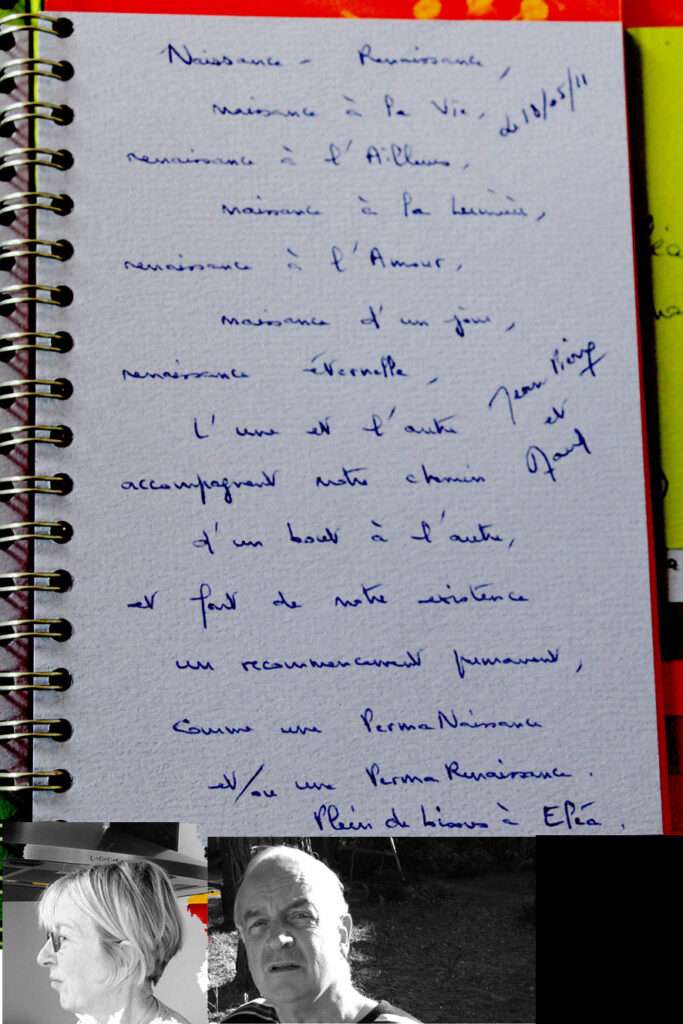 Naissance - Renaissance,
naissance à la Vie,
de 18/05/11
renaissance à l'Ailleurs,
naissance à la Lumière,
renaissance à l'Amour,
naissance d'un jour,
renaissance éternelle,
Jean Pierre
et
L'une et l'autre
accompagnent notre chemin
d'un bout à l'autre,
et font de notre existence
un recommencement permanent,
comme une PermaNaissance
et/ou une PermaRenaissance.
Plein de bisous à Eléa.